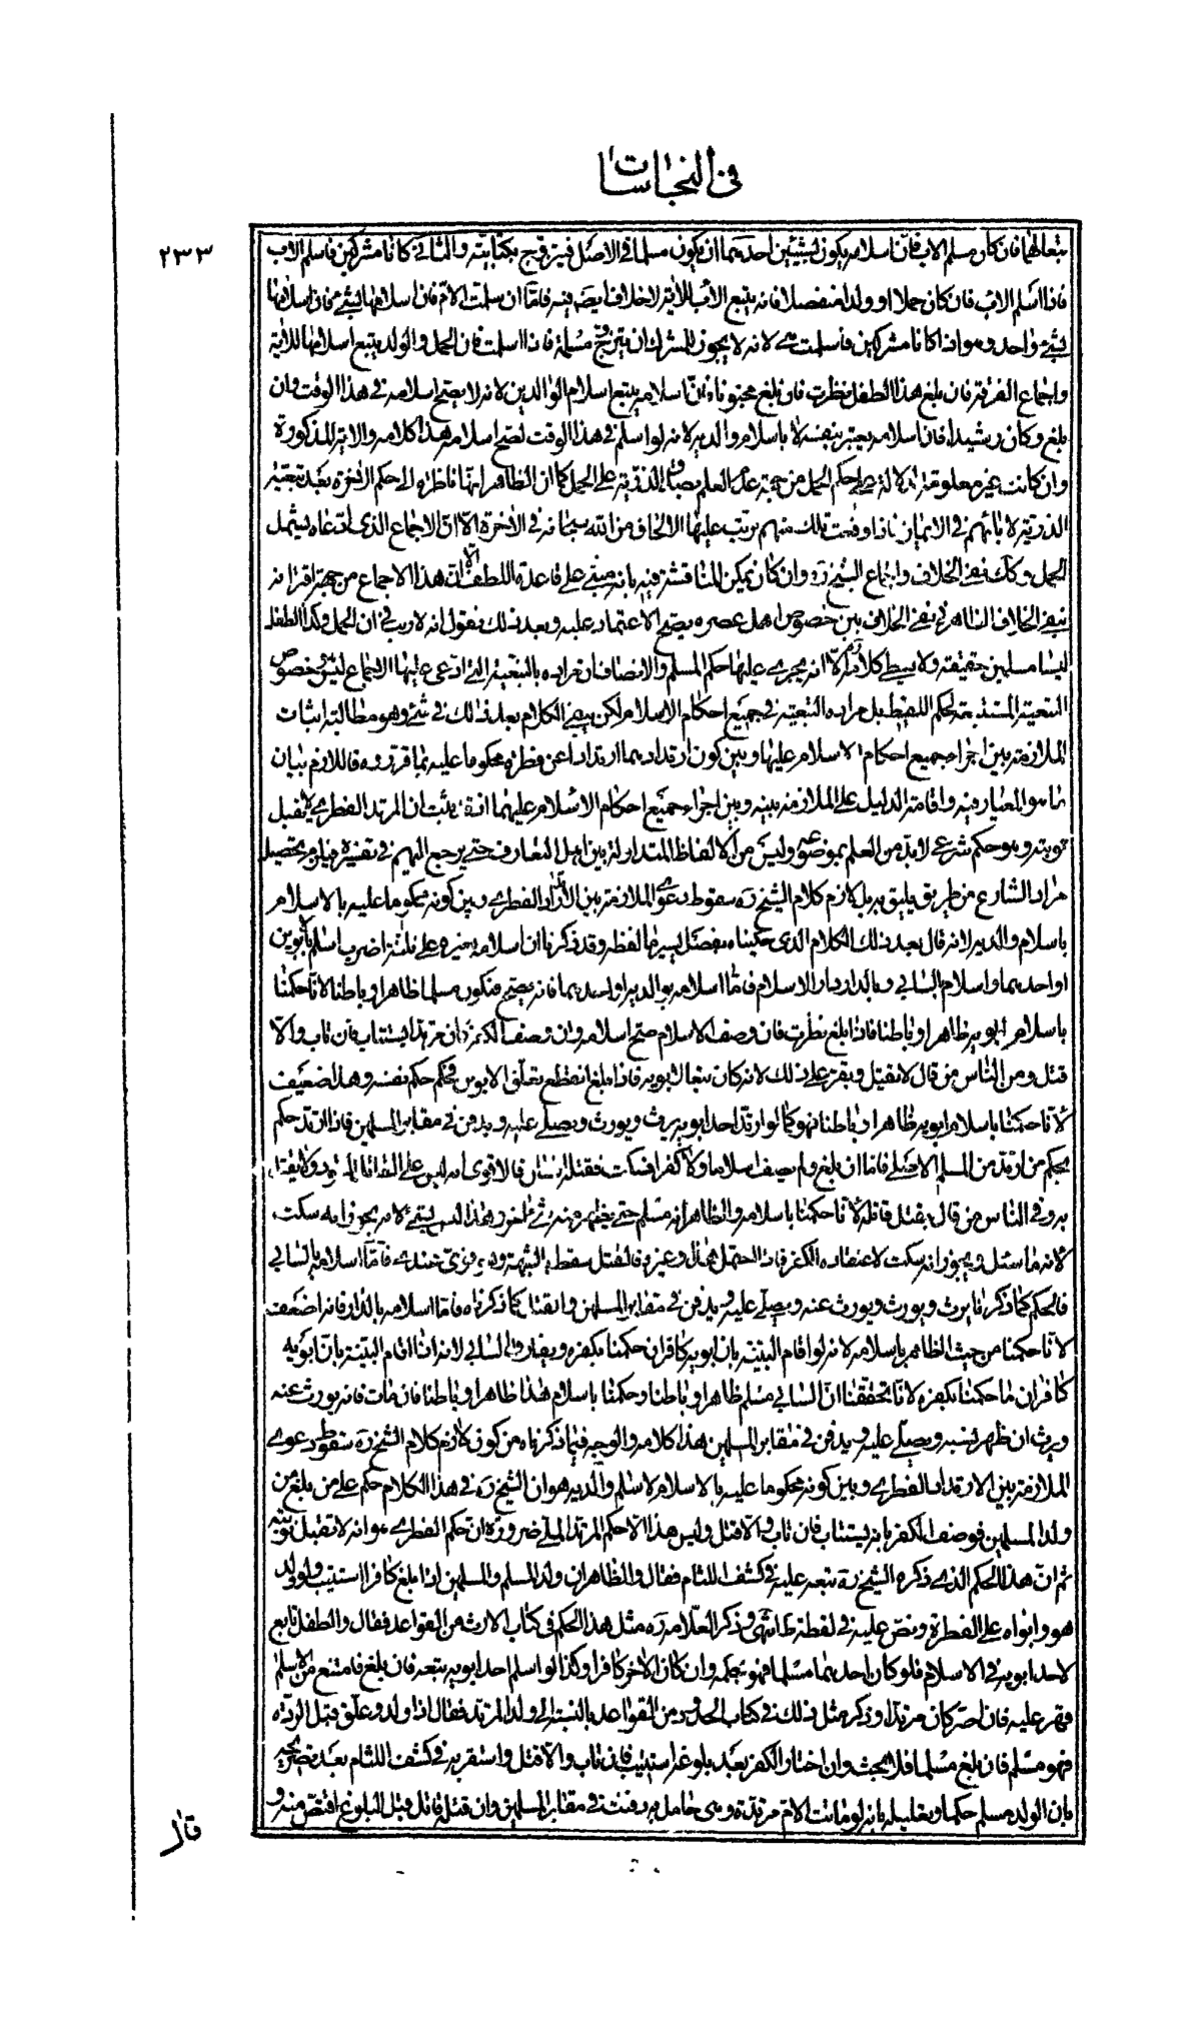 في النجاسات
٢٣٣
تبعا لهما فان كان مسلم الاب فان اسلامه يكون بشيئين احدهما ان يكون مسلما في الاصل فيتزوج بكتابية والثاني كانا مشركين فاسلم الاب
فاذا اسلم الاب فان كان حملا او ولدا منفصلا فانه يتبع الاب للاية بلا خلاف ايضا فيه فاما ان اسلمت الام فان اسلامها بشيء فان اسلامها
بشيء واحد وهو اذا كانا مشركين فاسلمت هي لانه لا يجوز للمشرك ان يتزوج مسلمة فاذا اسلمت فان الحمل والولد يتبع اسلامها للاية
واجماع الفرقة فان بلغ هذا الطفل نظرت فان بلغ مجنونا فان اسلامه يتبع اسلام الوالدين لانه لا يصح اسلامه في هذا الوقت وان
بلغ وكان رشيدا فان اسلامه يعتبر بنفسه لا باسلام والديه لانه لو اسلم في هذا الوقت لصح اسلامه هذا كلامه والاية المذكورة
وان كانت غير معلومة الدلالة على حكم الحمل من جهة عدم العلم بصدق الذرية على الحمل كما ان الظاهر انها ناظرة الى حكم الاخرة بعد تبعية
الذرية لابائهم في الايمان فاذا وقعت تلك منهم يرتب عليها الالحاق من الله سبحانه في الاخرة الا ان الاجماع الذي ادعاه يشمل
الحمل وكذلك نفي الخلاف واجماع الشيخ ره وان كان يمكن المناقشة فيه بانه مبني على قاعدة اللطف الا ان هذا الاجماع من جهة اقترانه
بنفي الخلاف الظاهر في نفي الخلاف بين خصوص اهل عصره يصح الاعتماد عليه وبعد ذلك نقول انه لا ريب في ان الحمل وكذا الطفل
ليسا مسلمين حقيقة ولا يعطي كلامه الا انه يجري عليها حكم المسلم والانصاف ان مراده بالتبعية التي ادعى عليها الاجماع ليس خصوص
التبعية المستتبعة لحكم اللقيط بل مراده التبعية في جميع احكام الاسلام لكن يبقى الكلام بعد ذلك في شيء وهو مطالبة اثبات
الملازمة بين اجراء جميع احكام الاسلام عليهما وبين كون ارتدادهما ارتدادا عن فطرة محكوما عليه بما قرروه فاللازم بيان
ما هو المعيار فيه واقامة الدليل على الملازمة بينه وبين اجراء جميع احكام الاسلام عليهما اذ ثبت ان المرتد الفطري لا يقبل
توبته وهو حكم شرعي لابد من العلم بموضوعه وليس من الالفاظ المتداولة بين اهل التعارف حتى يرجع اليهم في تفسيره فيلزم تحصيل
مراد الشارع من طريق يليق به بل لازم كلام الشيخ ره سقوط دعوى الملازمة بين الارتداد الفطري وبين كونه محكوما عليه بالاسلام
باسلام والديه لانه قال بعد ذلك الكلام الذي حكيناه بفصل يسير ما لفظه وقد ذكرنا ان اسلامه بغيره على ثلثة اضرب اسلام بابوين
او احدهما واسلام بالسابي وبالدار دار الاسلام فاما اسلامه بوالديه او احدهما فانه يصح فيكون مسلما ظاهرا وباطنا لانا حكمنا
باسلام ابويه ظاهرا وباطنا فاذا بلغ نظرت فان وصف الاسلام صح اسلامه وان وصف الكفر كان مرتدا يستتاب فان تاب والا
قتل ومن الناس من قال لا يقتل ويقر على ذلك لانه كان تبعا لابويه فاذا بلغ انقطع تعلق الابوين فحكم حكم نفسه وهذا ضعيف
لانا حكمنا باسلام ابويه ظاهرا وباطنا فهو كما لو ارتد احد ابويه يرث ويورث ويصلى عليه ويدفن في مقابر المسلمين فاذا ارتد حكم
بحكم من ارتد من المسلم الاصلي فاما ان بلغ ولم يصف اسلاما ولا كفرا فسكت فقتله انسان فالاقوى انه ليس على القاتل القود ولا يقتل
به وفي الناس من قال يقتل قاتله لانا حكمنا باسلامه والظاهر انه مسلم حتى يظهر منه شيء اخر وهذا ليس بشيء لانه يجوز انه سكت
لانه ما سئل ويجوز انه سكت لاعتقاده الكفر فاذا احتمل هذا وغيره فالقتل سقط بالشبهة وهو قوي عندي فاما اسلامه بالسابي
فالحكم كما ذكرنا يرث ويورث ويورث عنه ويصلى عليه ويدفن في مقابر المسلمين والقتل كما ذكرناه فاما اسلامه بالدار فانه اضعف
لانا حكمنا من حيث الظاهر باسلامه لانه لو اقام البينة بان ابويه كافران حكمنا بكفره ويفارق السابي لانه اذا اقام البينة بان ابويه
كافران ما حكمنا بكفره لانا تحققنا ان السابي مسلم ظاهرا وباطنا وحكمنا باسلام هذا ظاهرا وباطنا فان مات فانه يورث عنه
ويرث ان ظهر نسبه ويصلى عليه ويدفن في مقابر المسلمين هذا كلامه والوجه فيما ذكرناه من كون لازم كلام الشيخ ره سقوط دعوى
الملازمة بين الارتداد الفطري وبين كونه محكوما عليه بالاسلام لاسلام والديه هو ان الشيخ ره في هذا الكلام حكم على من بلغ من
ولد المسلمين فوصف الكفر بانه يستتاب فان تاب والا قتل وليس هذا الا حكم المرتد الملي ضرورة ان حكم الفطري هو انه لا تقبل توبته
ثم ان هذا الحكم الذي ذكره الشيخ ره تبعه عليه في كشف اللثام فقال والظاهر ان ولد المسلم والمسلمين اذا بلغ كافرا استتيب ولو ولد
هو وابواه على الفطرة ونص عليه في لقطة ط انتهى وذكر العلامة ره مثل هذا الحكم في كتاب الارث من القواعد فقال والطفل تابع
لاحد ابويه في الاسلام فلو كان احدهما مسلما فهو بحكمه وان كان الاخر كافرا وكذا لو اسلم احد ابويه يتبعه فان بلغ فامتنع من الاسلام
قهر عليه فان اصر كان مرتدا وذكر مثل ذلك في كتاب الحدود من القواعد بالنسبة الى ولد المرتد فقال اذا ولد وعلق قبل الردة
فهو مسلم فان بلغ مسلما فلا بحث وان اختار الكفر بعد بلوغه استتيب فان تاب والا قتل واستقربه في كشف اللثام بعد تصريحه
بان الولد مسلم حكما وتعليله بانه لو ماتت الام مرتدة وهي حامل به دفنت في مقابر المسلمين وان قتله قاتل قبل البلوغ اقتص منه و
قال